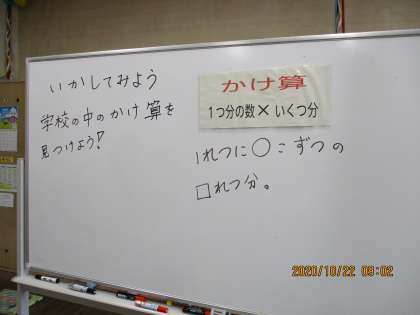 いかしてみよう
学校の中のかけ算を
見つけよう!
かけ算
1つ分の数×いくつ分
1れつに○こずつの
□れつ分。
2020/10/22 09:02